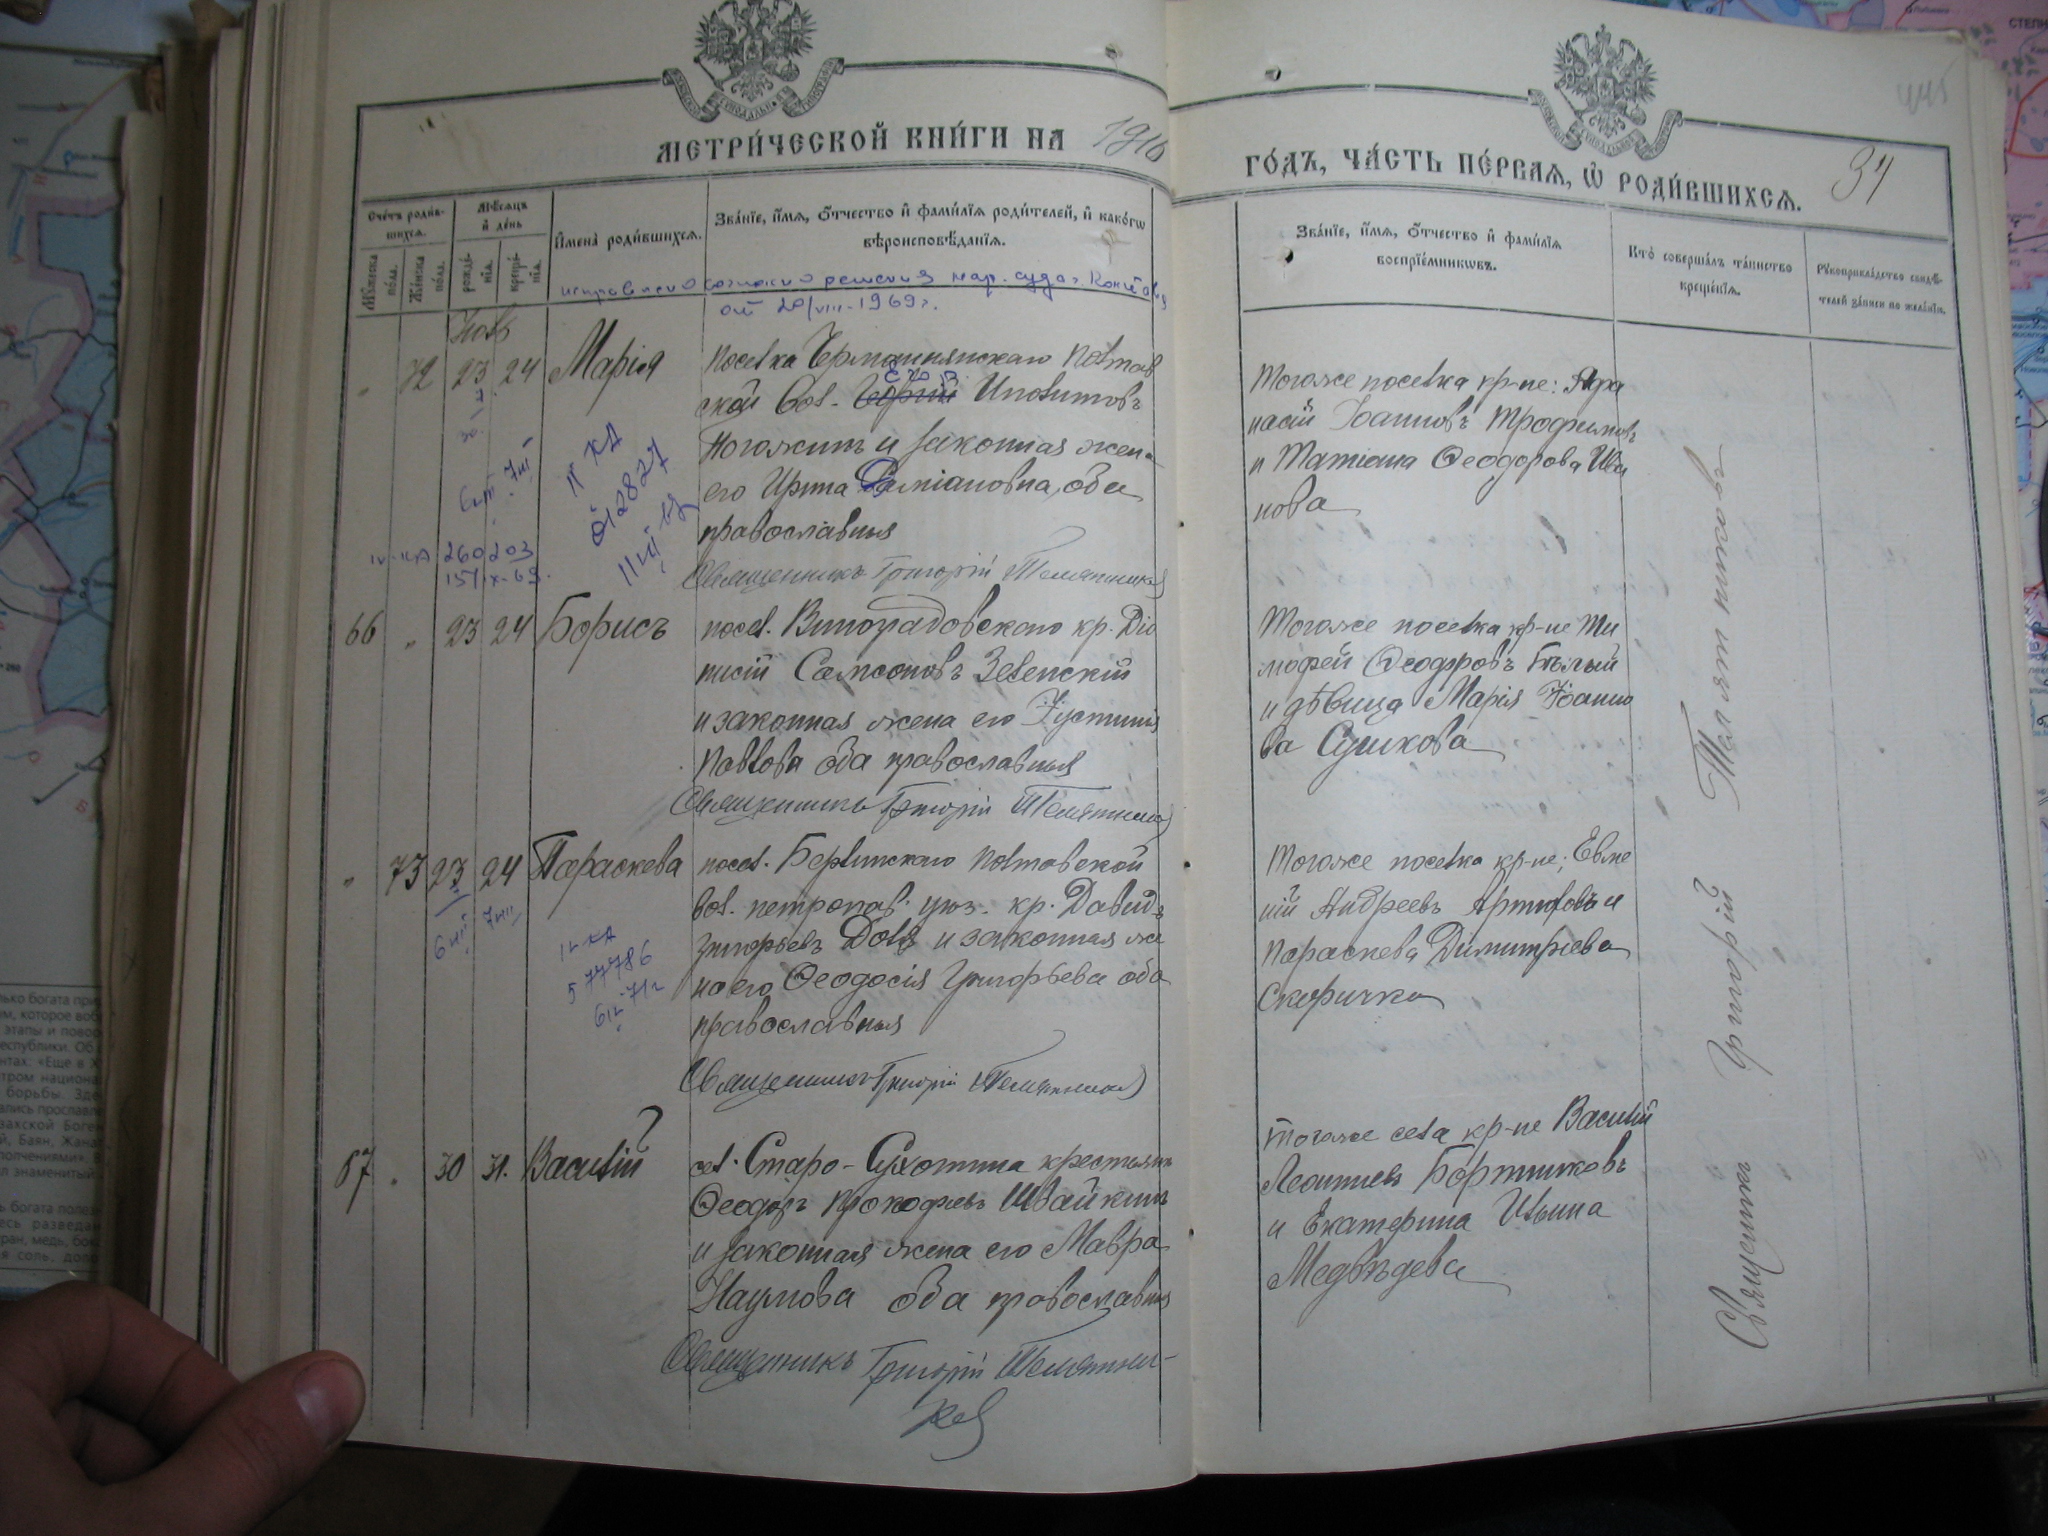 МЕТРИ́ЧЕСКОЙ КНИ́ГИ НА 1916
ГО́ДЪ, ЧА́СТЬ ПЕ́РВАЯ, Ѡ РОДИ́ВШИХСЯ.
Сче́тъ роди́в-
шихся.
Му́жеска по́ла.
Же́нска по́ла.
Мѣ́сяцъ
и де́нь
рожде́-
нія.
креще́-
нія.
Имена́ роди́вшихся.
Зва́ніе, и́мя, о́тчество и фами́лія роди́телей, и како́гѡ
вѣроисповѣ́данія.
Зва́ніе, и́мя, о́тчество и фами́лія
воспріе́мникѡвъ.
Кто̀ соверша́лъ та́инство
креще́нія.
Рукоприкла́дство свидѣ́-
телей за́писи по жела́нію.
исправлено согласно решения нар. суда г.
от 20/VIII-1969г.
72 23 24 Марія
поселка Полтав
ской вол. Георгій
и законная жена
его Ирина Даміановна, оба
православныя
Священникъ Григорій Темятников
012827
260 203
15/IX-69.
Тогоже поселка кр-не: Афа
насій Іоанновъ Трофимовъ
и Татіана Ѳеодорова Ива
нова
66 " 23 24 Борисъ
посел. Виноградовскаго кр. Діо
нисій Самсоновъ Зеленскій
и законная жена его Іустинія
Павлова оба православныя
Священникъ Григорій
Тогоже поселка кр-не Ти
мофей Ѳеодоровъ Бѣлый
и дѣвица Марія Іоанно
ва Сушкова
" 73 23 24 Параскева
посел. Берлинскаго Полтавской
вол. петропав. уѣз. кр. Давидъ
Григорьевъ и законная же
на его Ѳеодосія Григорьева оба
православныя
Священникъ Григорій
577786
Тогоже поселка кр-не: Евме
ній Андреевъ и
Параскева Димитріева
Скоричка
67 " 30 31. Василій
сел. Старо-Сухотина крестьянин
Ѳеодоръ Прокофьевъ Швайкинъ
и законная жена его Мавра
Наумова оба православныя
Священникъ Григорій
Тогоже села кр-не Василій
Леонтіевъ Бортниковъ
и Екатерина Ильина
Медвѣдева
Священникъ Григорій